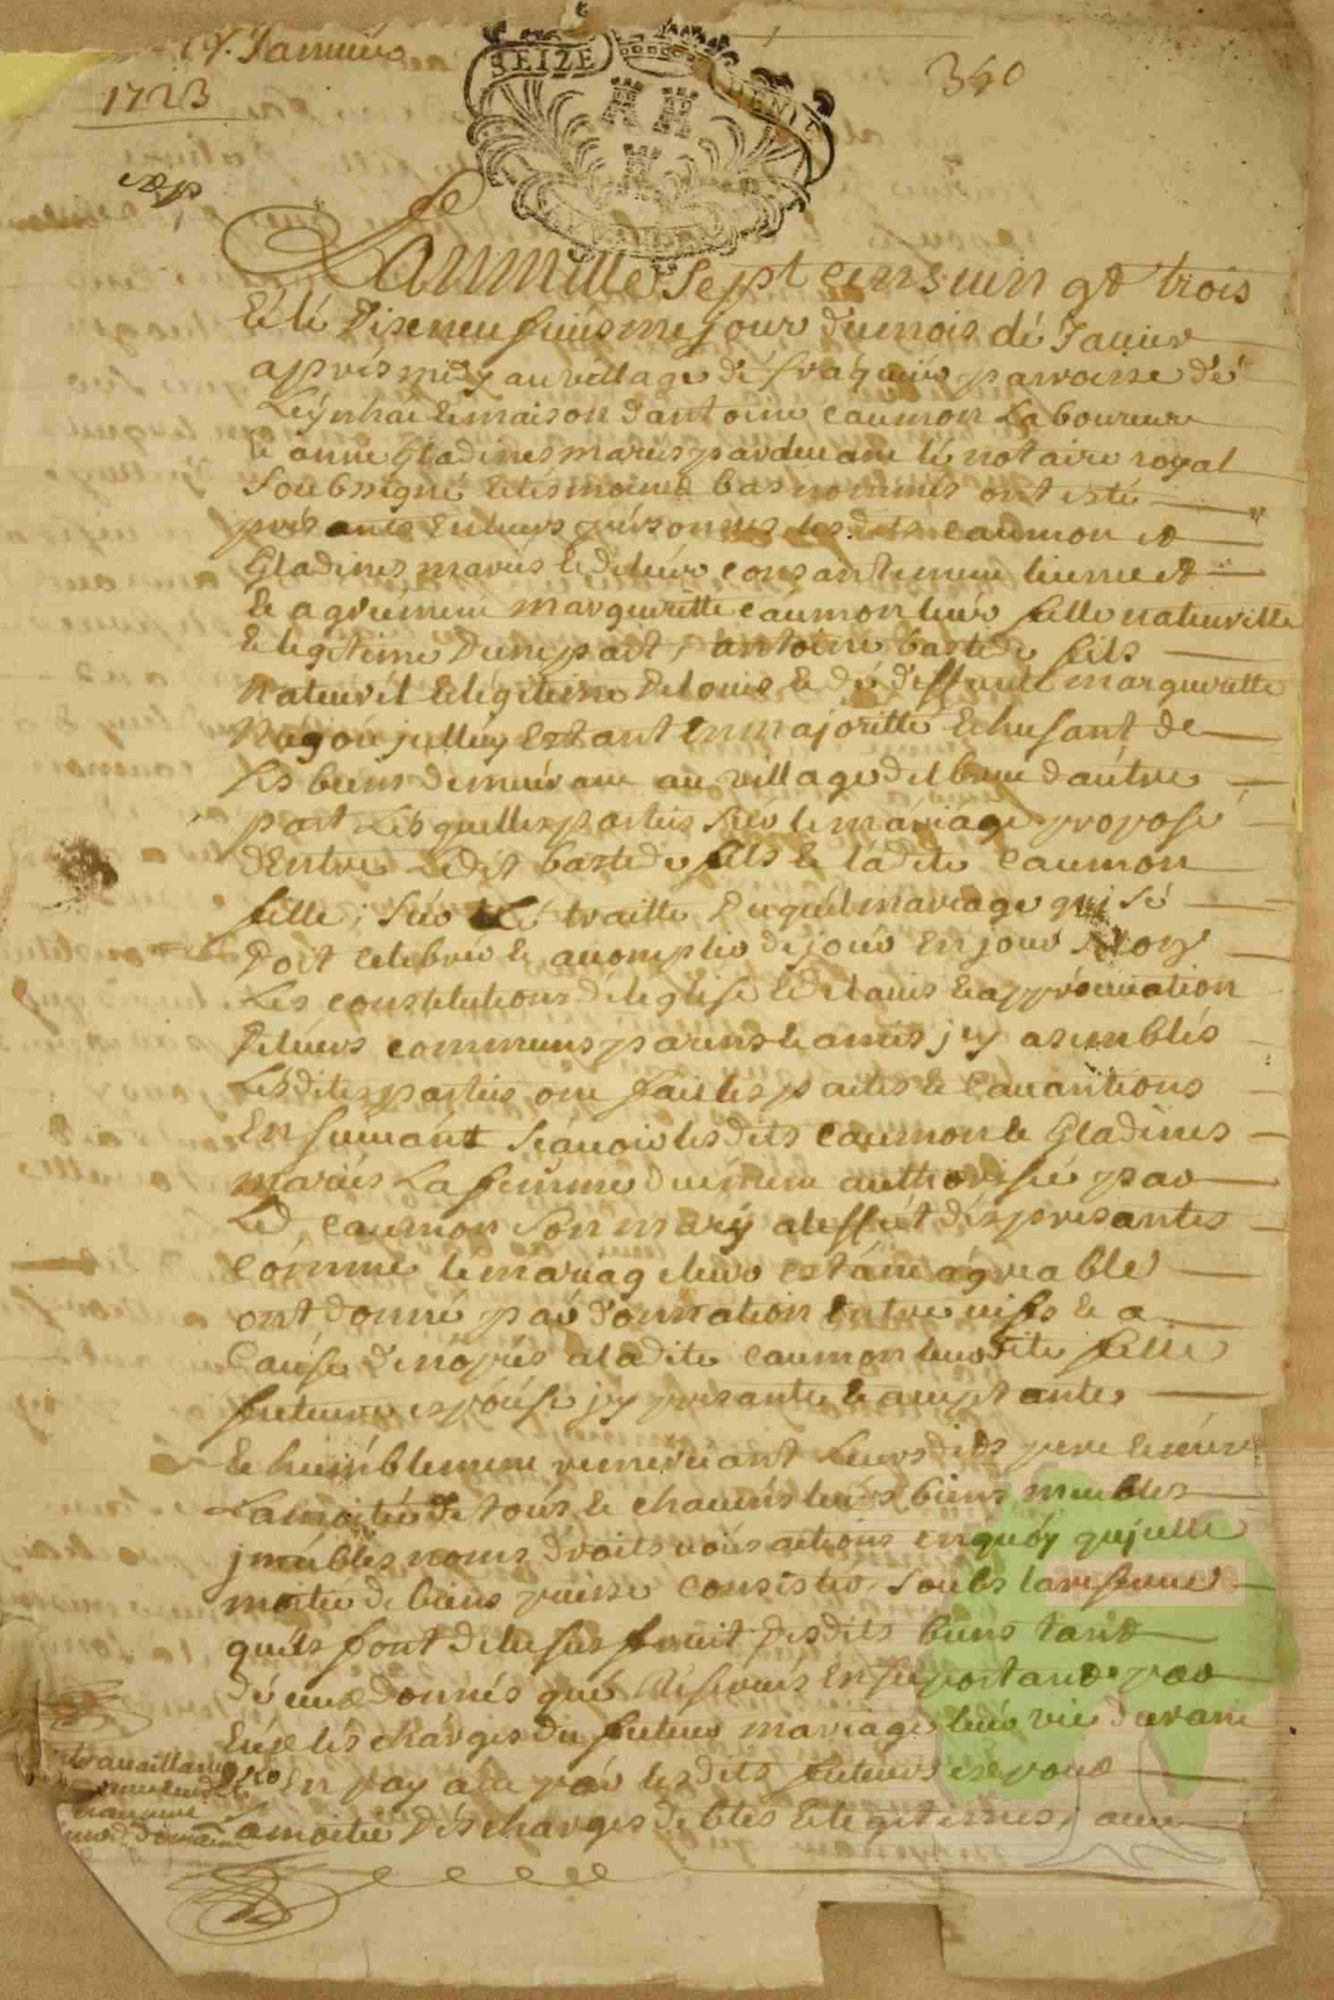 19. Januier
1723
340
SEIZE DENIE
Lan mille sept cens uin gt trois
Et le dixeneufuiesme jour du mois de Januier
apres midy au village de fraquiés parroisse de
Leynhac et maison dantoine caumon Laboureur
et anne Gladines mariés pardeuant le notaire royal
soubsigné et tesmoins bas nommés ont esté
presants en leurs personnes lesdits caumon et
Gladines mariés et de leur consantement
et agreement margueritte caumon leur fille nateurelle
et legitime dune part, antoine bastide fils
nateurel et legitime de louis et de deffunte margueritte
jcelluy estant en majoritté et husant de
ses biens demeurant au village d'autre
part Lesquelles parties sur le mariage proposé
dentre Ledit bastide fils et ladite caumon
fille, sur le traitté duquel mariage quj se
doit celebrer et acomplir de jour en jour selon
Les constitutions de leglise et de lauis et approuation
de leurs communs parens et amis jcy asemblés
Lesdites parties ont fait les pactes et conuantions
En suiuant scauoir lesdits caumon et Gladines
mariés La femme duement authorisée par
Led. caumon son mary a leffet des presantes
comme le mariage leur estant agreable
ont donné par donnation entre uifs et a
cause de nopces a ladite caumon leurdite fille
future espouse jcy presante et aceptante
et humblement remerciant Leursdits pere et mere
La moitié de tous et chacuns leurs biens meubles
jmeubles noms droits uoix actions en quoy qujcelle
moitié de biens puisse consister, soubs la reserue
quils font de lusufruit desdits biens tant
donnés que reserués en suportant par
Eux les charges du futeur mariage leur vie durant
En payant par lesdits futeurs espoux
La moitié des charges debtes et legitimes, auec
trauaillant